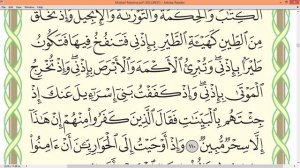 ٱلْكِتَٰبَ وَٱلْحِكْمَةَ وَٱلتَّوْرَىٰةَ وَٱلْإِنجِيلَ وَإِذْ تَخْلُقُ
مِنَ ٱلطِّينِ كَهَيْـَٔةِ ٱلطَّيْرِ بِإِذْنِى فَتَنفُخُ فِيهَا فَتَكُونُ
طَيْرًۢا بِإِذْنِى وَتُبْرِئُ ٱلْأَكْمَهَ وَٱلْأَبْرَصَ بِإِذْنِى وَإِذْ تُخْرِجُ
ٱلْمَوْتَىٰ بِإِذْنِى وَإِذْ كَفَفْتُ بَنِىٓ إِسْرَٰٓءِيلَ عَنكَ إِذْ
جِئْتَهُم بِٱلْبَيِّنَٰتِ فَقَالَ ٱلَّذِينَ كَفَرُوا۟ مِنْهُمْ إِنْ هَٰذَآ
إِلَّا سِحْرٌ مُّبِينٌ ١١٠ وَإِذْ أَوْحَيْتُ إِلَى ٱلْحَوَارِيِّـۧنَ أَنْ ءَامِنُوا۟